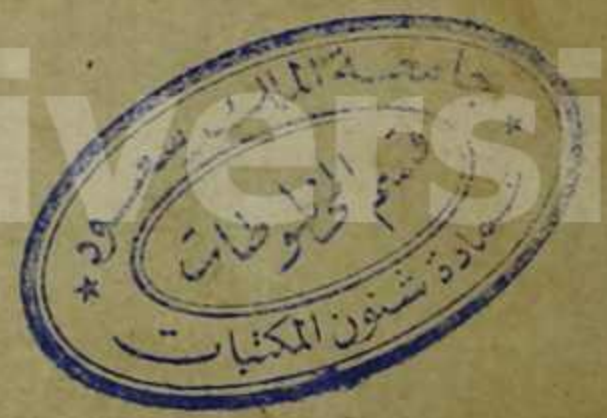 جامعة الملك سعود
قسم المخطوطات
عمادة شئون المكتبات
iversi